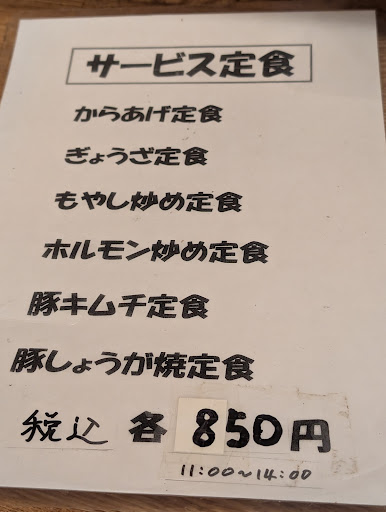 サービス定食
からあげ定食
ぎょうざ定食
もやし炒め定食
ホルモン炒め定食
豚キムチ定食
豚しょうが焼定食
税込 各 850円
11:00~14:00